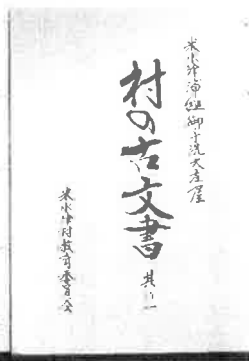 米水津浦組御手洗大庄屋
村の古文書 其の一
米水津村教育委員会